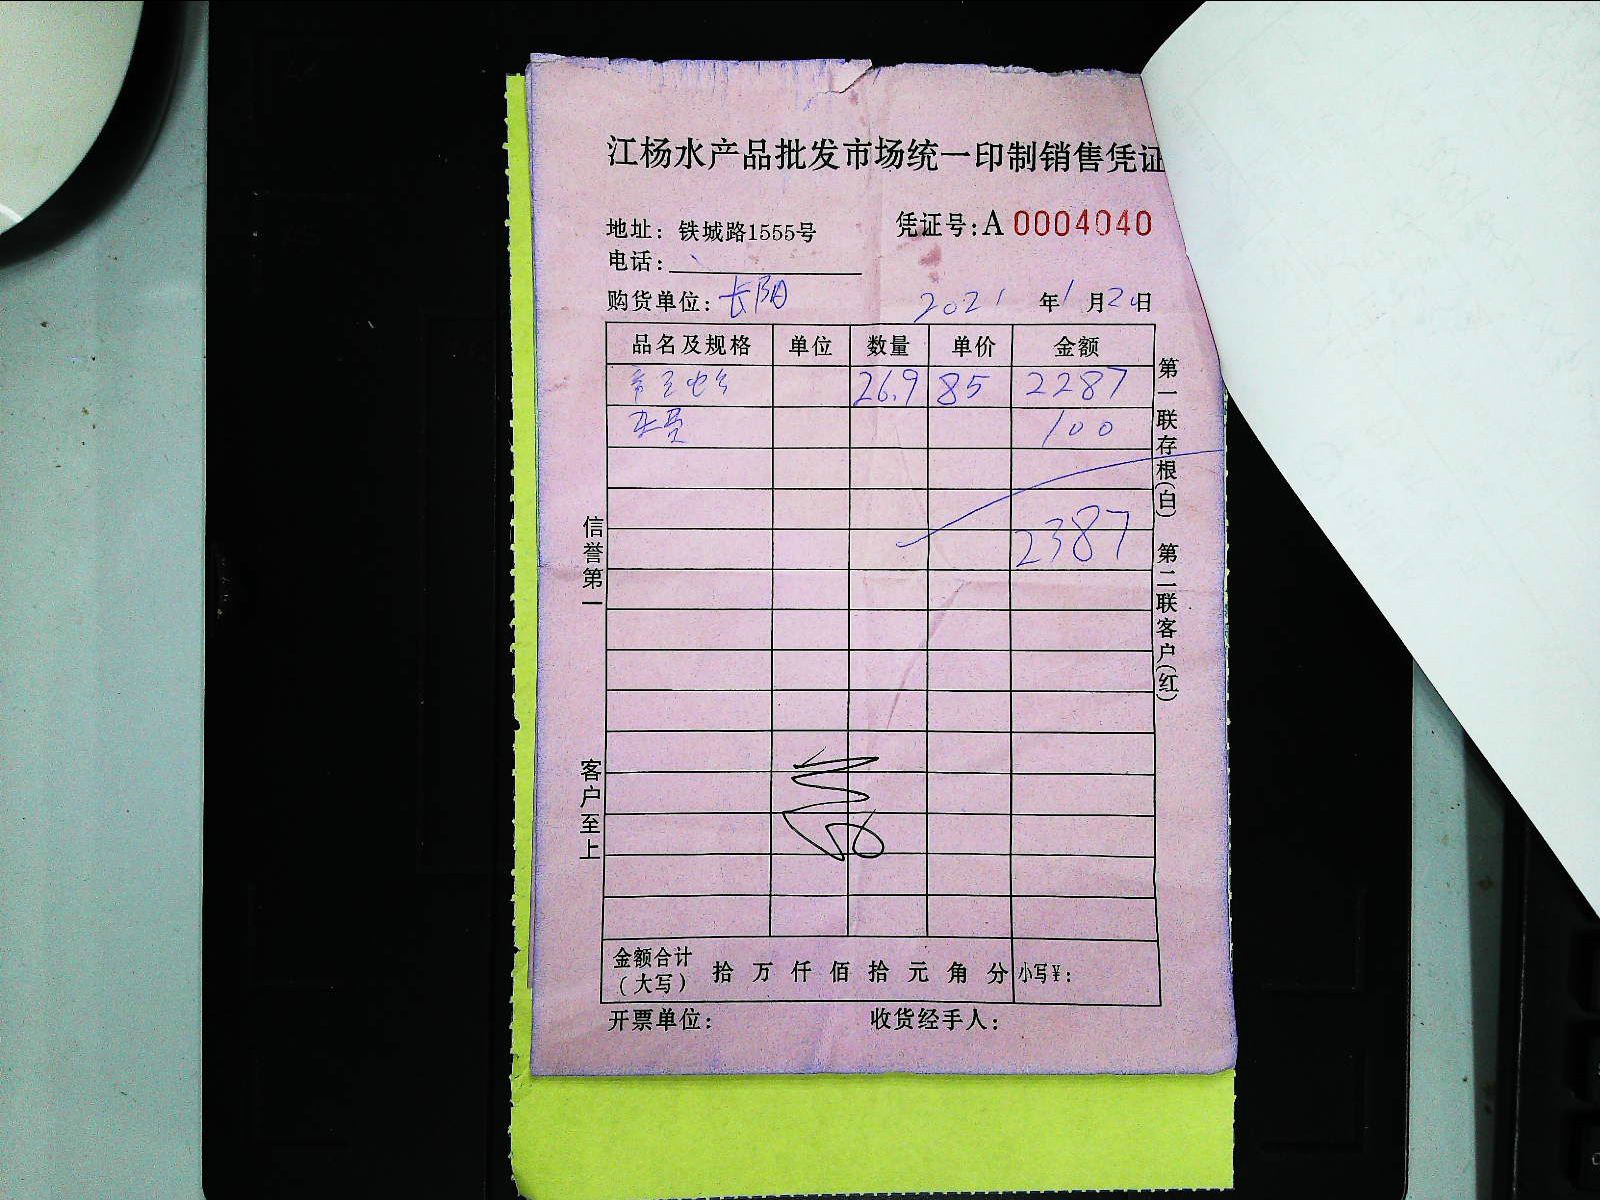 江杨水产品批发市场统一印制销售凭证
地址: 铁城路1555号 凭证号:A 0004040
电话:
购货单位: 长阳 2021 年 1 月 20 日
品名及规格 单位 数量 单价 金额
26.9 85 2287
100
2387
信誉第一
客户至上
第一联存根(白) 第二联客户(红)
金额合计(大写) 拾 万 仟 佰 拾 元 角 分 小写¥:
开票单位: 收货经手人: